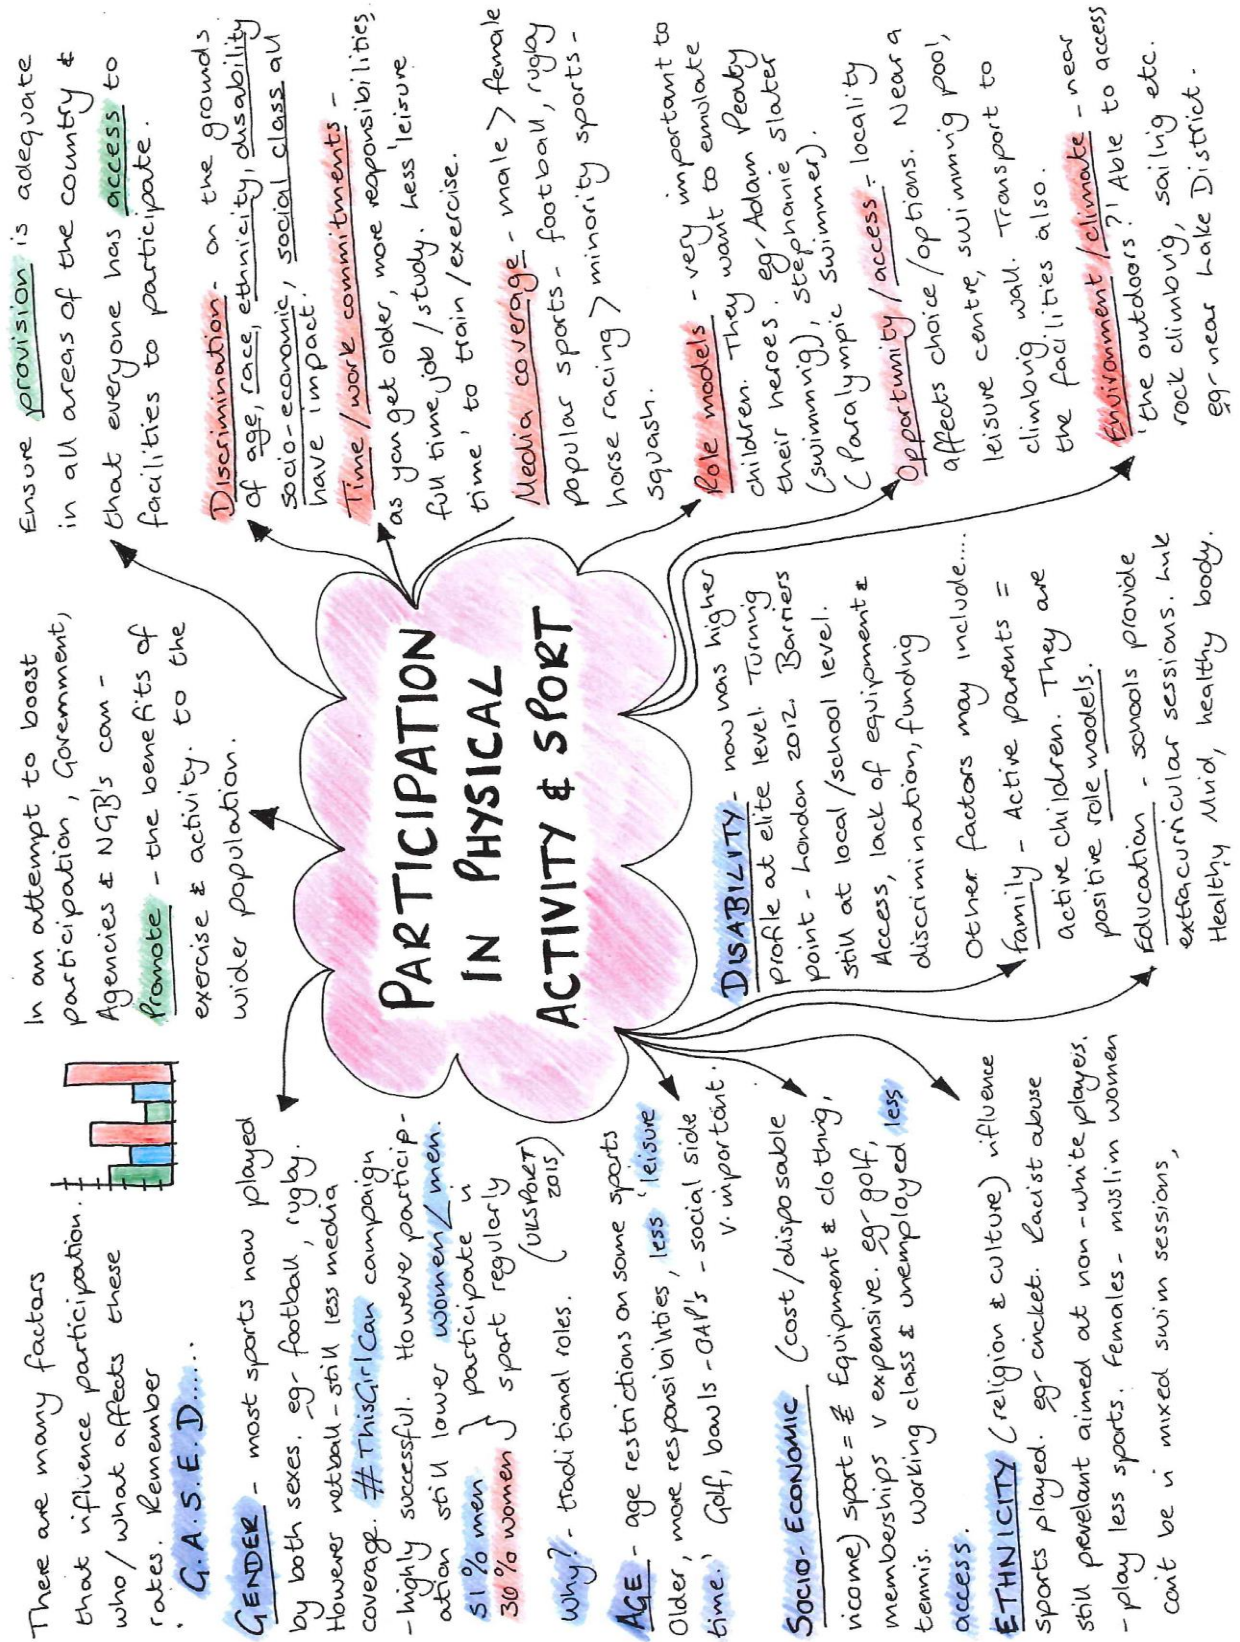 There are many factors
that influence participation.
who/what affects these
rates. Remember
G.A.S.E.D......
GENDER - most sports now played
by both sexes. eg- football, rugby.
However netball - still less media
coverage. #ThisGirlCan campaign
- highly successful. However particip-
ation still lower women<men.
51% men } participate in
30% women } sport regularly
(UKSPORT 2015)
Why? - traditional roles.
AGE - age restrictions on some sports
Older, more responsibilities, less 'leisure
time.' Golf, bowls - OAP's - social side
v. important.
SOCIO-ECONOMIC (cost/disposable
income) sport = £ Equipment & clothing,
memberships v expensive. eg- golf,
tennis. Working class & unemployed less
access.
ETHNICITY (religion & culture) influence
sports played. eg- cricket. Racist abuse
still prevelant aimed at non-white players.
Females - muslim women
- play less sports.
can't be in mixed swim sessions,
In an attempt to boost
participation, Government,
Agencies & NGB's can -
Promote - the benefits of
exercise & activity. to the
wider population.
PARTICIPATION
IN PHYSICAL
ACTIVITY & SPORT
DISABILITY - now has higher
profile at elite level. Turning
point - London 2012. Barriers
still at local/school level.
Access, lack of equipment &
discrimination, funding
Other factors may include....
Family - Active parents =
active children. They are
positive role models.
Education - schools provide
extracurricular sessions. Link
Healthy Mind, healthy body.
Ensure provision is adequate
in all areas of the country &
that everyone has access to
facilities to participate.
Discrimination - on the grounds
of age, race, ethnicity, disability
socio-economic, social class all
have impact.
Time/work commitments -
as you get older, more responsibilities,
full time job/study. Less 'leisure
time' to train/exercise.
Media coverage - male > female
popular sports - football, rugby
horse racing > minority sports -
squash.
Role models - very important to
children. They want to emulate
their heroes. eg- Adam Peaty
(swimming), Stephanie Slater
(Paralympic swimmer).
Opportunity/access - locality
affects choice/options. Near a
leisure centre, swimming pool,
climbing wall. Transport to
the facilities also.
Environment/climate - near
'the outdoors'?! Able to access
rock climbing, sailing etc.
eg- near Lake District.